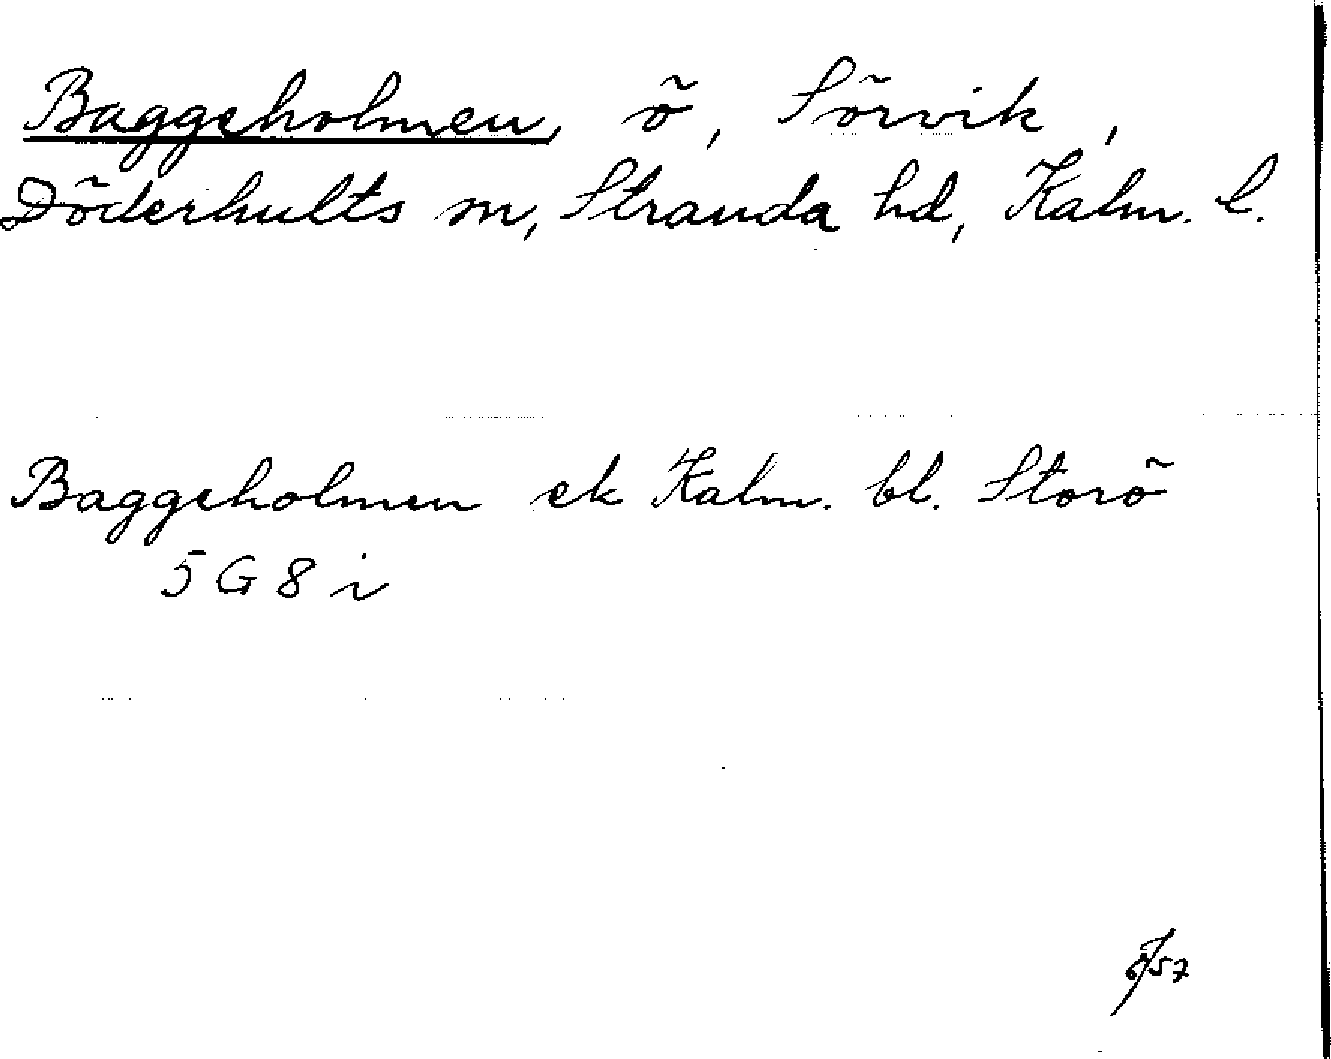 Baggeholmen, ö, Sörvik,
Döderhults sn, Stranda hd, Kalm. l.
Baggeholmen ek Kalm. bl. Storö
5 G 8 i
57